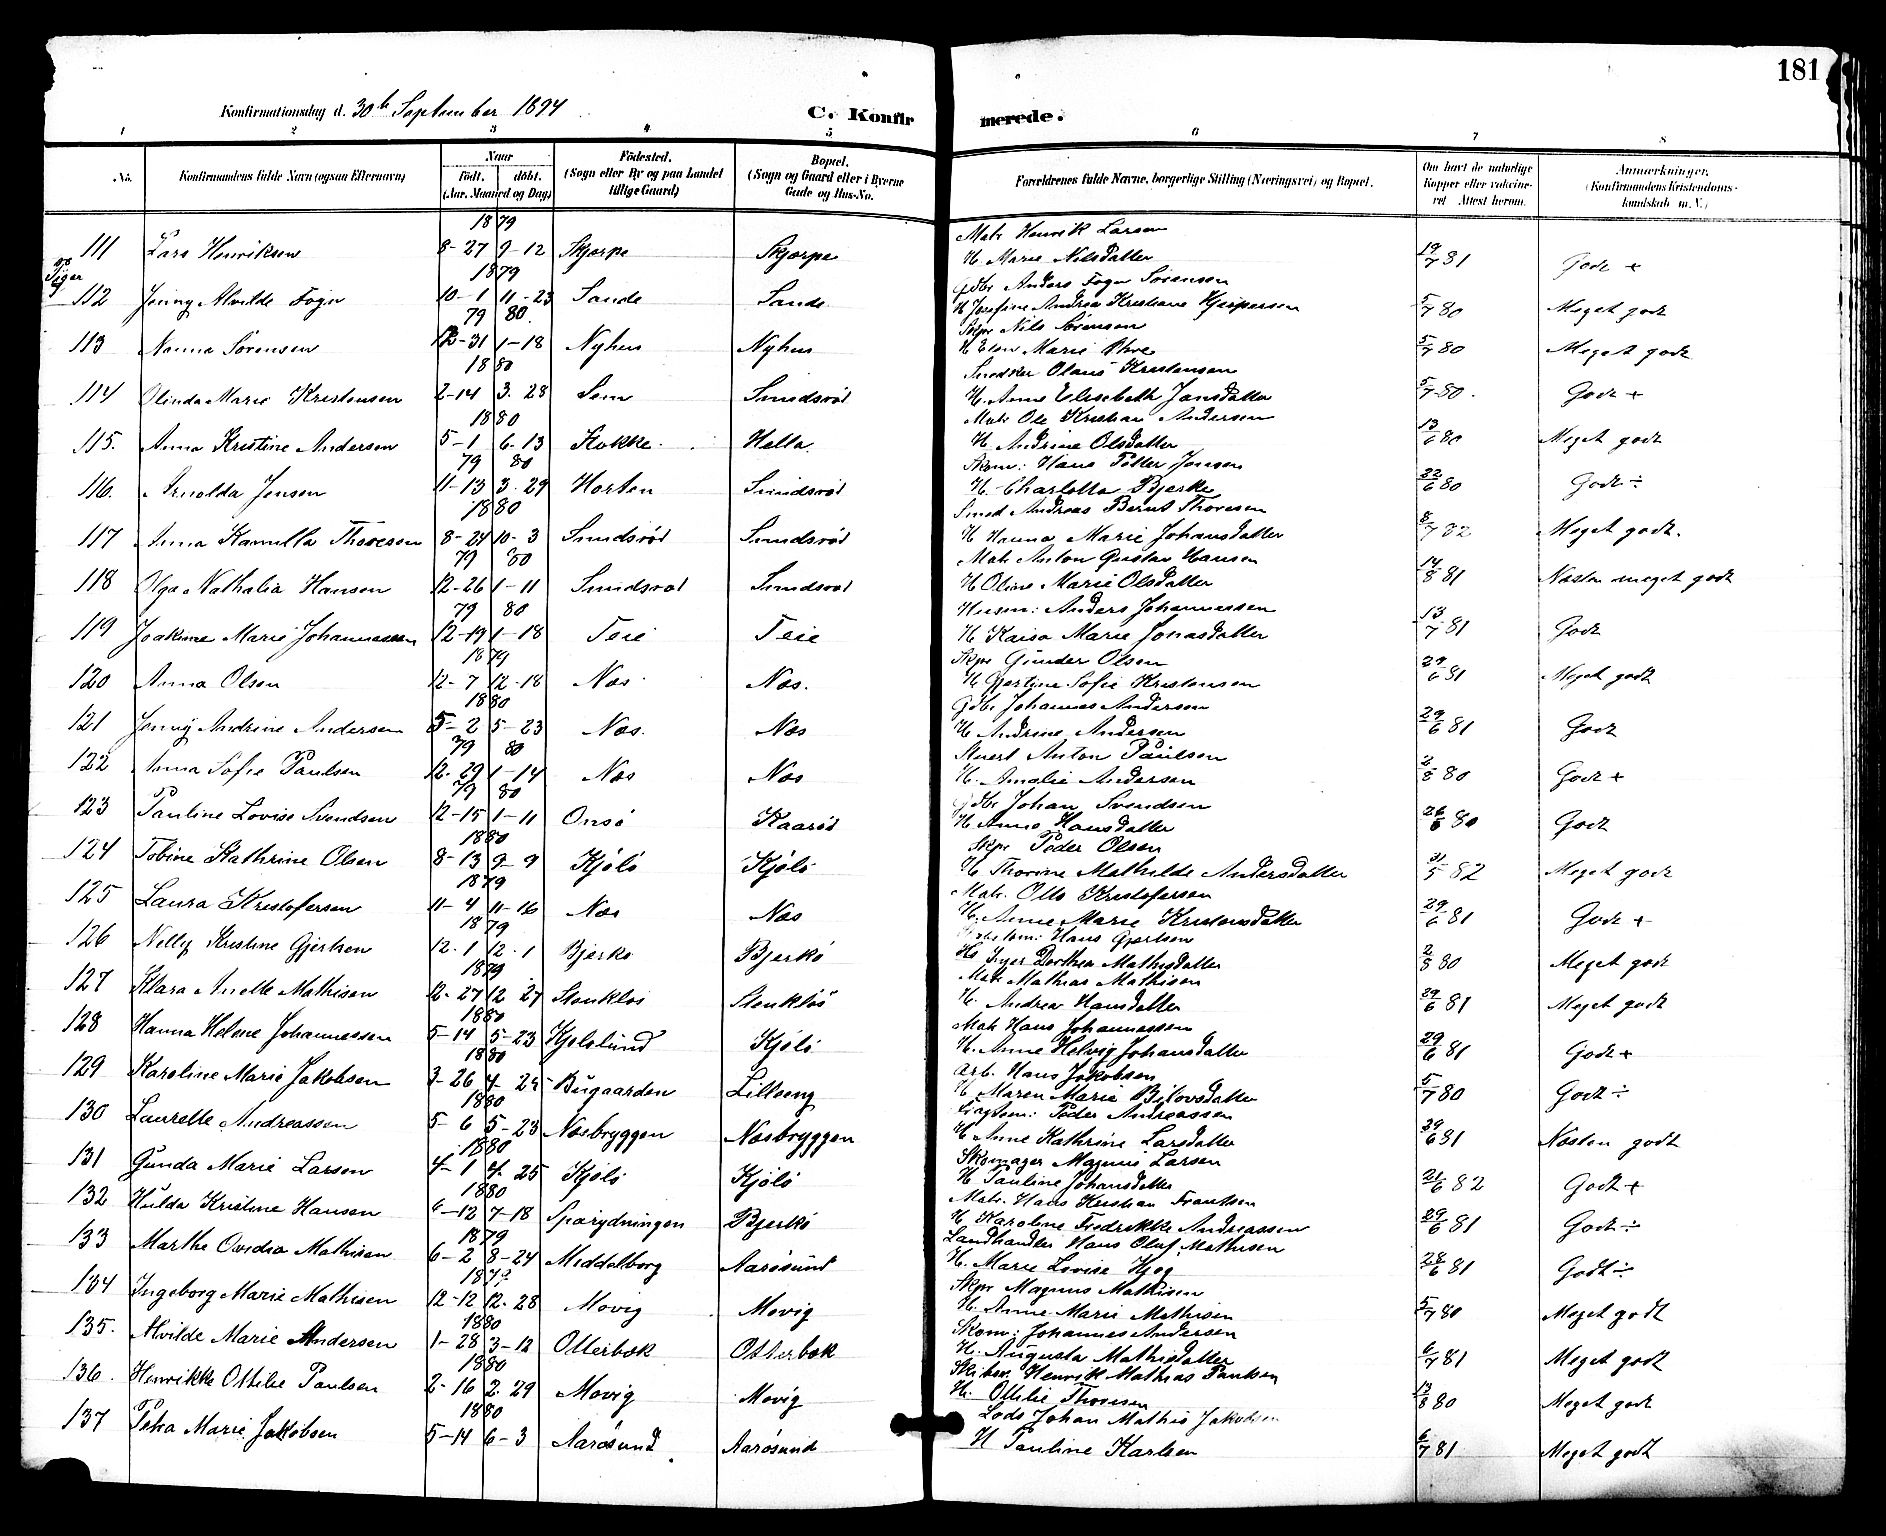 181
Konfirmationsdag d. 30te September 1894
C. Konfirmerede.
1 2 3 4 5 6 7 8
No. Konfirmandens fulde Navn (ogsaa Efternavn) Naar födt. döbt. (Aar. Maaned og Dag) Födested. (Sogn eller By og paa Landet tillige Gaard) Bopæl. (Sogn og Gaard eller i Byerne Gade og Hus-No. Forældrenes fulde Navne, borgerlige Stilling (Næringsvei) og Bopæl. Om havt de naturlige Kopper eller vakcineret Attest herom. Anmærkninger. (Konfirmandens Kristendomskundskab m. V.)
1879 Matr Henrik Larsen
111 Lars Henriksen 8-27 9-12 Skjærpe Skjærpe H. Marie Nilsdatter 19/7 81 Godt +
Piger
1879 Gdbr Anders Fogn Sörensen
112 Jenny Alvilde Fogn 10-1 11-23 Sande Sande H Josefine Andrea Kristiane Kaspersen 5/7 80 Meget godt
79 80 Skpr Nils Sörensen
113 Nanna Sörensen 12-31 1-18 Nyhus Nyhus H Elen Marie 5/7 80 Meget godt
1880 Snedker Olaus Kristensen
114 Olinda Marie Kristensen 2-14 3-28 Sem Smidsröd H. Anne Elisebeth Jansdatter 5/7 80. Godt +
1880 Matr Ole Kristian Andersen
115. Anna Kristine Andersen 5-1 6-13 Stokke Hella H. Andrine Olsdatter 13/6 80 Meget godt
79 80 Skom: Hans Petter Jensen
116. Arnolda Jensen 11-13 3-29 Horten Smidsröd H. Charlotta Bjerke 22/6 80 Godt ÷
1880 Smed Andreas Bernt Thoresen
117 Anna Kamilla Thoresen 8-24 10-3 Smidsröd Smidsröd H Hanna Marie Johansdatter 8/7 82 Meget godt.
79 80 Matr Anton Gustav Hansen
118 Olga Nathalia Hansen 12-26 1-11 Smidsröd Smidsröd H Oline Marie Olsdatter 14/8 81 Næsten meget godt
79 80 Husm: Anders Johannessen
119 Joakime Marie Johannessen 12-19 1-18 Teie Teie H Kaisa Marie Jonasdatter 13/7 81 Godt
1879 Skpr Gunder Olsen
120 Anna Olsen 12-7 12-18 Næs Næs. H Gjertine Sofie Kristensen 29/6 81 Meget godt
1880 Gdbr Johannes Andersen
121 Jenny Andrine Andersen 5-2 5-23 Næs. Næs H Andrine Andersen 29/6 81 Godt
79 80 Stuert Anton Paulsen
122 Anna Sofie Paulsen 12-29 1-14 Næs Næs H. Amalie Andersen 2/8 80 Godt +
79 80 Gdbr Johan Svendsen
123 Pauline Lovise Svendsen 12-15 1-11 Onsö Kaaröd H. Anne Hansdatter 26/6 80 Godt
1880 Skpr Peder Olsen
124 Tobine Kathrine Olsen 8-13 9-9 Kjölö Kjölö H Thorine Mathilde Andersdatter 31/5 82 Meget godt
1879 Matr. Otto Kristofersen
125 Laura Kristofersen 11-4 11-16 Næs Næs H. Anne Marie Kristensdatter 29/6 81 Godt +
1879 Hans Gjertsen
126 Nelly Kristine Gjertsen 12-1 12-1 Bjerkö Bjerkö H. Inger Dorthea Mathisdatter 2/8 80 Meget godt
1879 Matr Mathias Mathisen
127 Klara Anette Mathisen 12-27 12 27 Stenklös Stenklös H. Andrea Hansdatter 29/6 81 Meget godt
1880 Matr Hans Johannessen
128 Hanna Helene Johannessen 5-14 5-23 Kjölölund Kjölö H. Anne Helvig Johansdatter 29/6 81 Godt +
1880 Arb. Hans Jakobsen
129 Karoline Marie Jakobsen 3-26 4-25 Bugaarden Lilleeng H Maren Marie 5/7 80 Godt ÷
1880 Peder Andreassen
130 Laurette Andreassen 5-6 5-23 Næsbryggen Næsbryggen H Anne Kathrine Larsdatter 29/6 81 Næsten godt
1880 Skomager Magnus Larsen
131 Gunda Marie Larsen 4-1 4-25 Kjölö Kjölö H Pauline Johansdatter 21/6 82 Godt +
1880 Matr. Hans Kristian Frantsen
132 Hulda Kristine Hansen 6-12 7-18 Bjerkö H Karoline Fredrikke Andreassen 29/6 81 Godt ÷
1879 Landhandler Hans Oluf Mathisen
133 Marthe Ovidia Mathisen 6-2 8-24 Middelborg Aarösund H. Marie Lovise 28/6 81 Godt ÷
1879 Skpr Magnus Mathisen
134 Ingeborg Marie Mathisen 12-12 12-28 Movig Movig H. Anne Marie Mathisen 5/7 80 Meget godt
1880 Skom: Johannes Andersen
135. Alvilde Marie Andersen 1-28 3-12 Otterbæk Otterbæk H. Augusta Mathisdatter 6/7 81 Meget godt
1880 Skibsr. Henrik Mathias Paulsen
136. Henrikke Ottilie Paulsen 2-16 2-29 Movig Movig H. Ottilie Thoresen 13/8 80 Meget godt
1880 Lods Johan Mathis Jakobsen
137 Petra Marie Jakobsen 5-14 6-3 Aarösund Aarösund H Pauline Karlsen 6/7 81 Meget godt